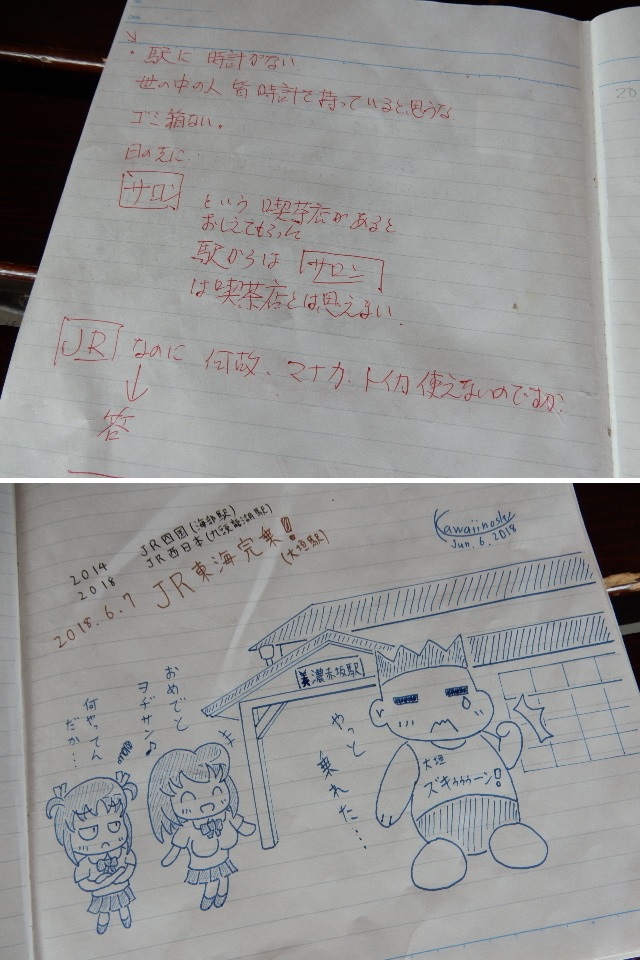 ・駅に 時計がない
世の中の人 皆 時計を持っていると思うな
ゴミ箱ない。
目の先に
サロン
という 喫茶店があると
おしえてもらって
駅からは サロン
は喫茶店とは思えない
JR なのに 何故、マナカ、トイカ 使えないのですか、
↓
答
2014 JR四国(海部駅)
2018 JR西日本(九頭竜湖駅)
2018.6.7 JR東海完乗!(大垣駅)
Kawaiinosky
Jun.6.2018
美濃赤坂駅
おめでと
ヲヂサン♪
何やってん
だか…
やっと
乗れた…
大垣
ズキゥゥゥーン!